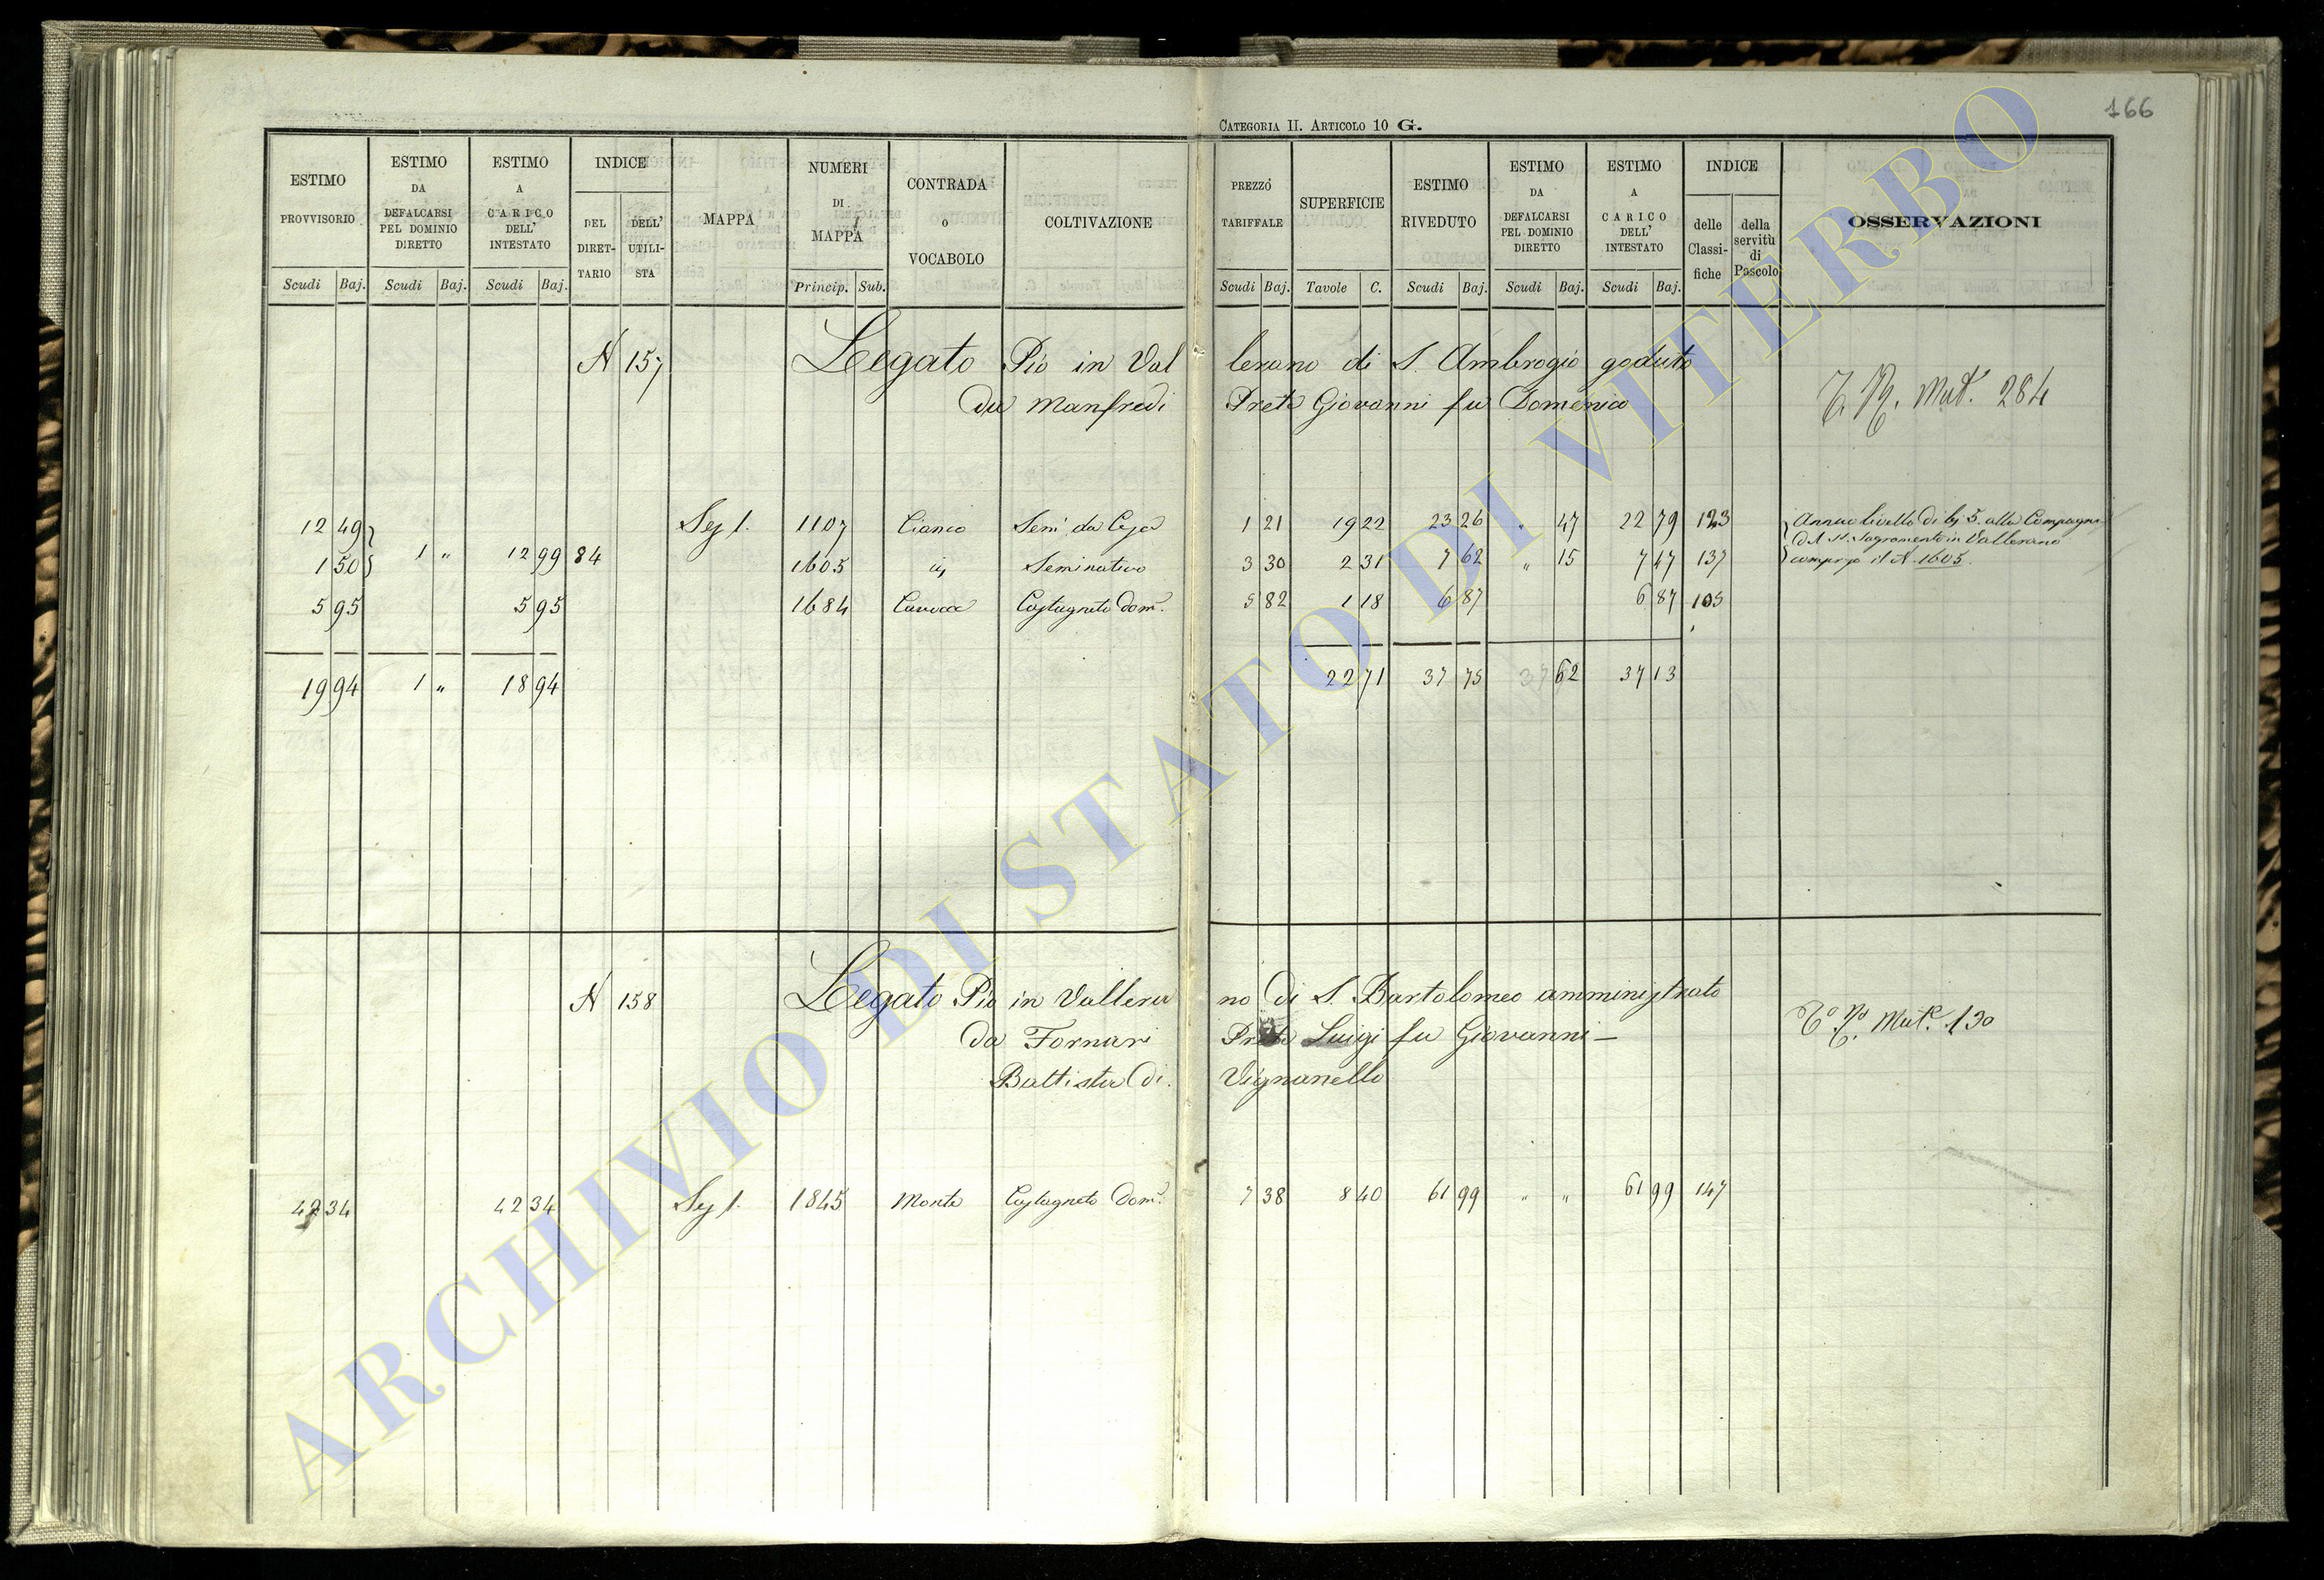 166
CATEGORIA II. ARTICOLO 10 G.
ESTIMO PROVVISORIO Scudi Baj.
ESTIMO DA DEFALCARSI PEL DOMINIO DIRETTO Scudi Baj.
ESTIMO A CARICO DELL' INTESTATO Scudi Baj.
INDICE DEL DIRET-TARIO DELL' UTILI-STA
MAPPA
NUMERI DI MAPPA Princip. Sub.
CONTRADA o VOCABOLO
COLTIVAZIONE
PREZZO TARIFFALE Scudi Baj.
SUPERFICIE Tavole C.
ESTIMO RIVEDUTO Scudi Baj.
ESTIMO DA DEFALCARSI PEL DOMINIO DIRETTO Scudi Baj.
ESTIMO A CARICO DELL' INTESTATO Scudi Baj.
INDICE delle Classi-fiche della servitù di Pascolo
OSSERVAZIONI
N 157 Legato Pio in Val lerano di S. Ambrogio goduto
da Manfredi Prete Giovanni fu Domenico
Mut. 284
12 49 Sez 1. 1107 Cianco Semi da Ceja 1 21 19 22 23 26 " 47 22 79 123 Annuo livello di bj 5. alla Compagnia
1 50 1 " 12 99 84 1605 id Seminativo 3 30 2 31 7 62 " 15 7 47 137 del SS. Sagramento in Vallerano
compreso il N. 1605.
5 95 5 95 1684 Castagneto Dom. 5 82 1 18 6 87 6 87 105
19 94 1 " 18 94 22 71 37 75 62 37 13
N 158 Legato Pio in Vallera no di S. Bartolomeo amministrato
da Fornari Prete Luigi fu Giovanni —
Battista di Vignanello
Mut. 130
42 34 42 34 Sez 1. 1845 Monte Castagneto Dom. 7 38 8 40 61 99 " " 61 99 147
ARCHIVIO DI STATO DI VITERBO